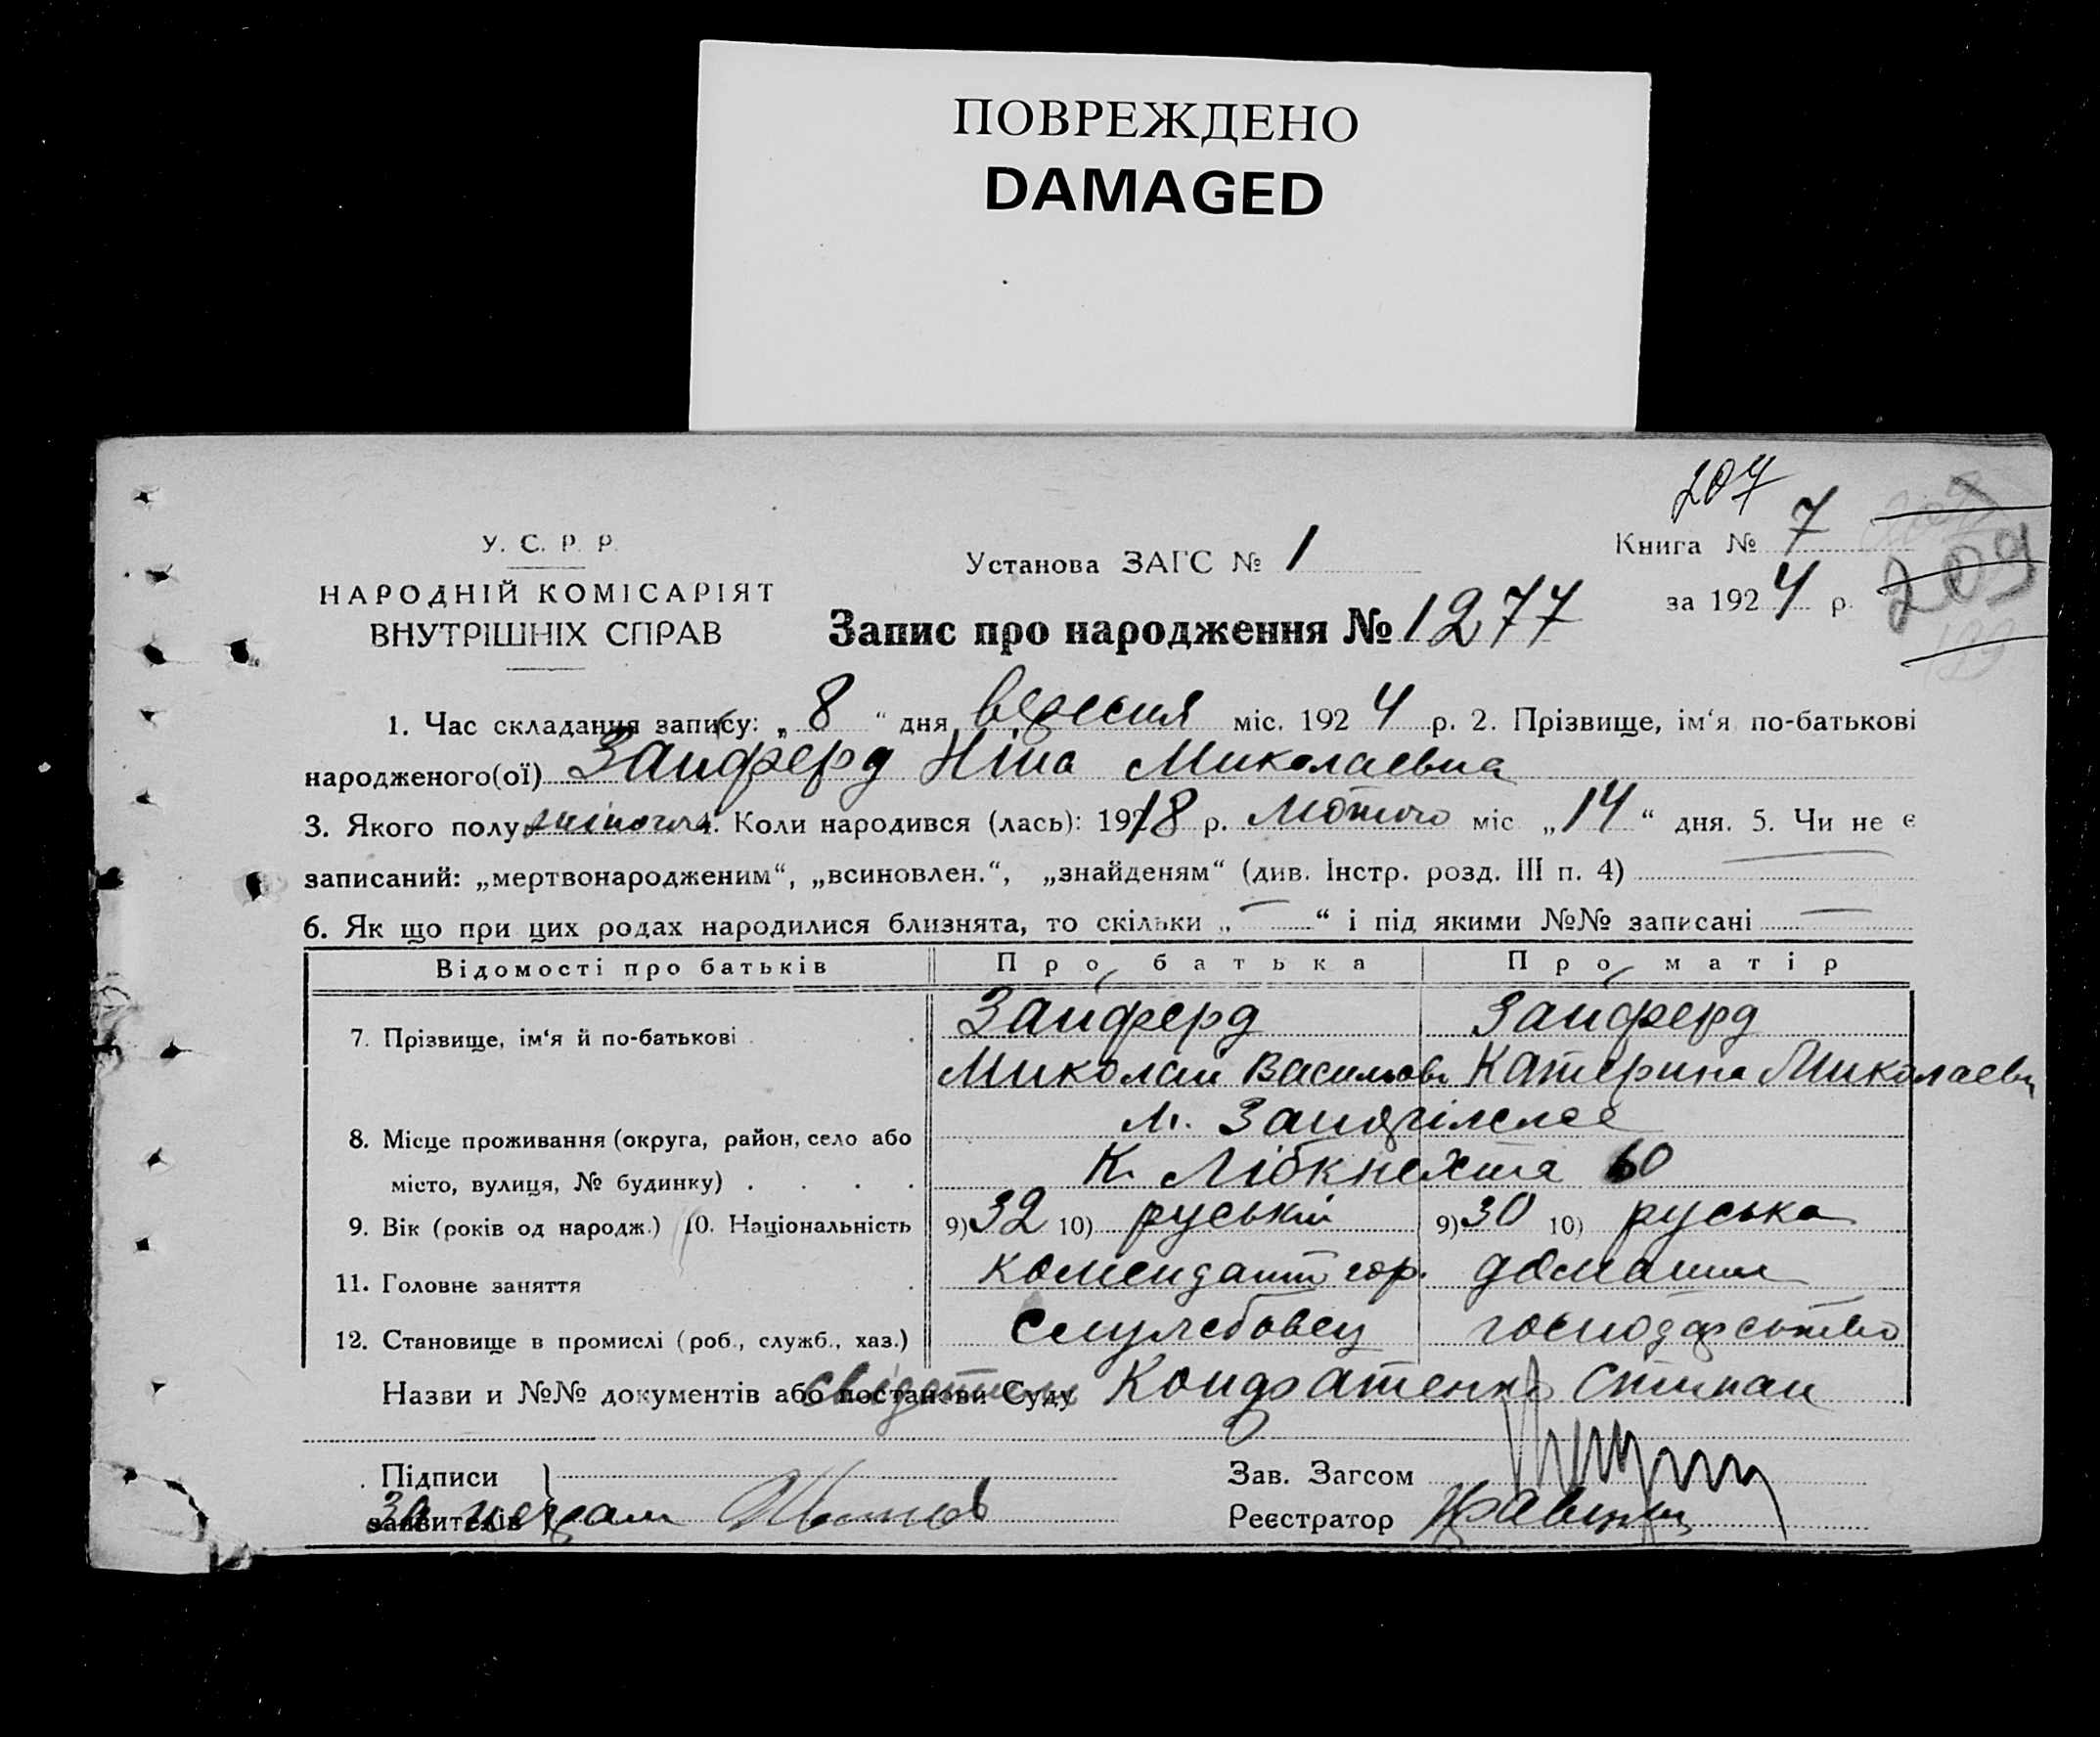 ПОВРЕЖДЕНО
DAMAGED
207
У. С. Р. Р.
НАРОДНІЙ КОМІСАРІЯТ
ВНУТРІШНІХ СПРАВ
Установа ЗАГС № 1
Книга № 7
за 1924 р.
209
Запис про народження № 1277
1. Час складання запису: „ 8 “ дня вересня міс. 1924 р. 2. Прізвище, ім‘я по-батькові
народженого(ої) Зайферд Ніна Миколаевна
3. Якого полу жіночого 4. Коли народився (лась): 1918 р. Лютого міс „ 14 “ дня. 5. Чи не є
записаний: „мертвонародженим“, „всиновлен.“, „знайденям“ (див. Інстр. розд. III п. 4)
6. Як що при цих родах народилися близнята, то скільки „ — “ і під якими №№ записані —
Відомості про батьків Про батька Про матір
7. Прізвище, ім‘я й по-батькові Зайферд Зайферд
Миколай Васильов Катерина Миколаевн
8. Місце проживання (округа, район, село або м.
місто, вулиця, № будинку) К. Лібкнехта 60
9. Вік (років од народж.) 10. Національність 9) 32 10) руській 9) 30 10) руська
11. Головне заняття комендант гор. домашнє
12. Становище в промислі (роб., служб., хаз.) служебовец господарство
Назви и №№ документів або постанови Суду Кондратенко Степан
Підписи
заявителів
Зав. Загсом
Реєстратор